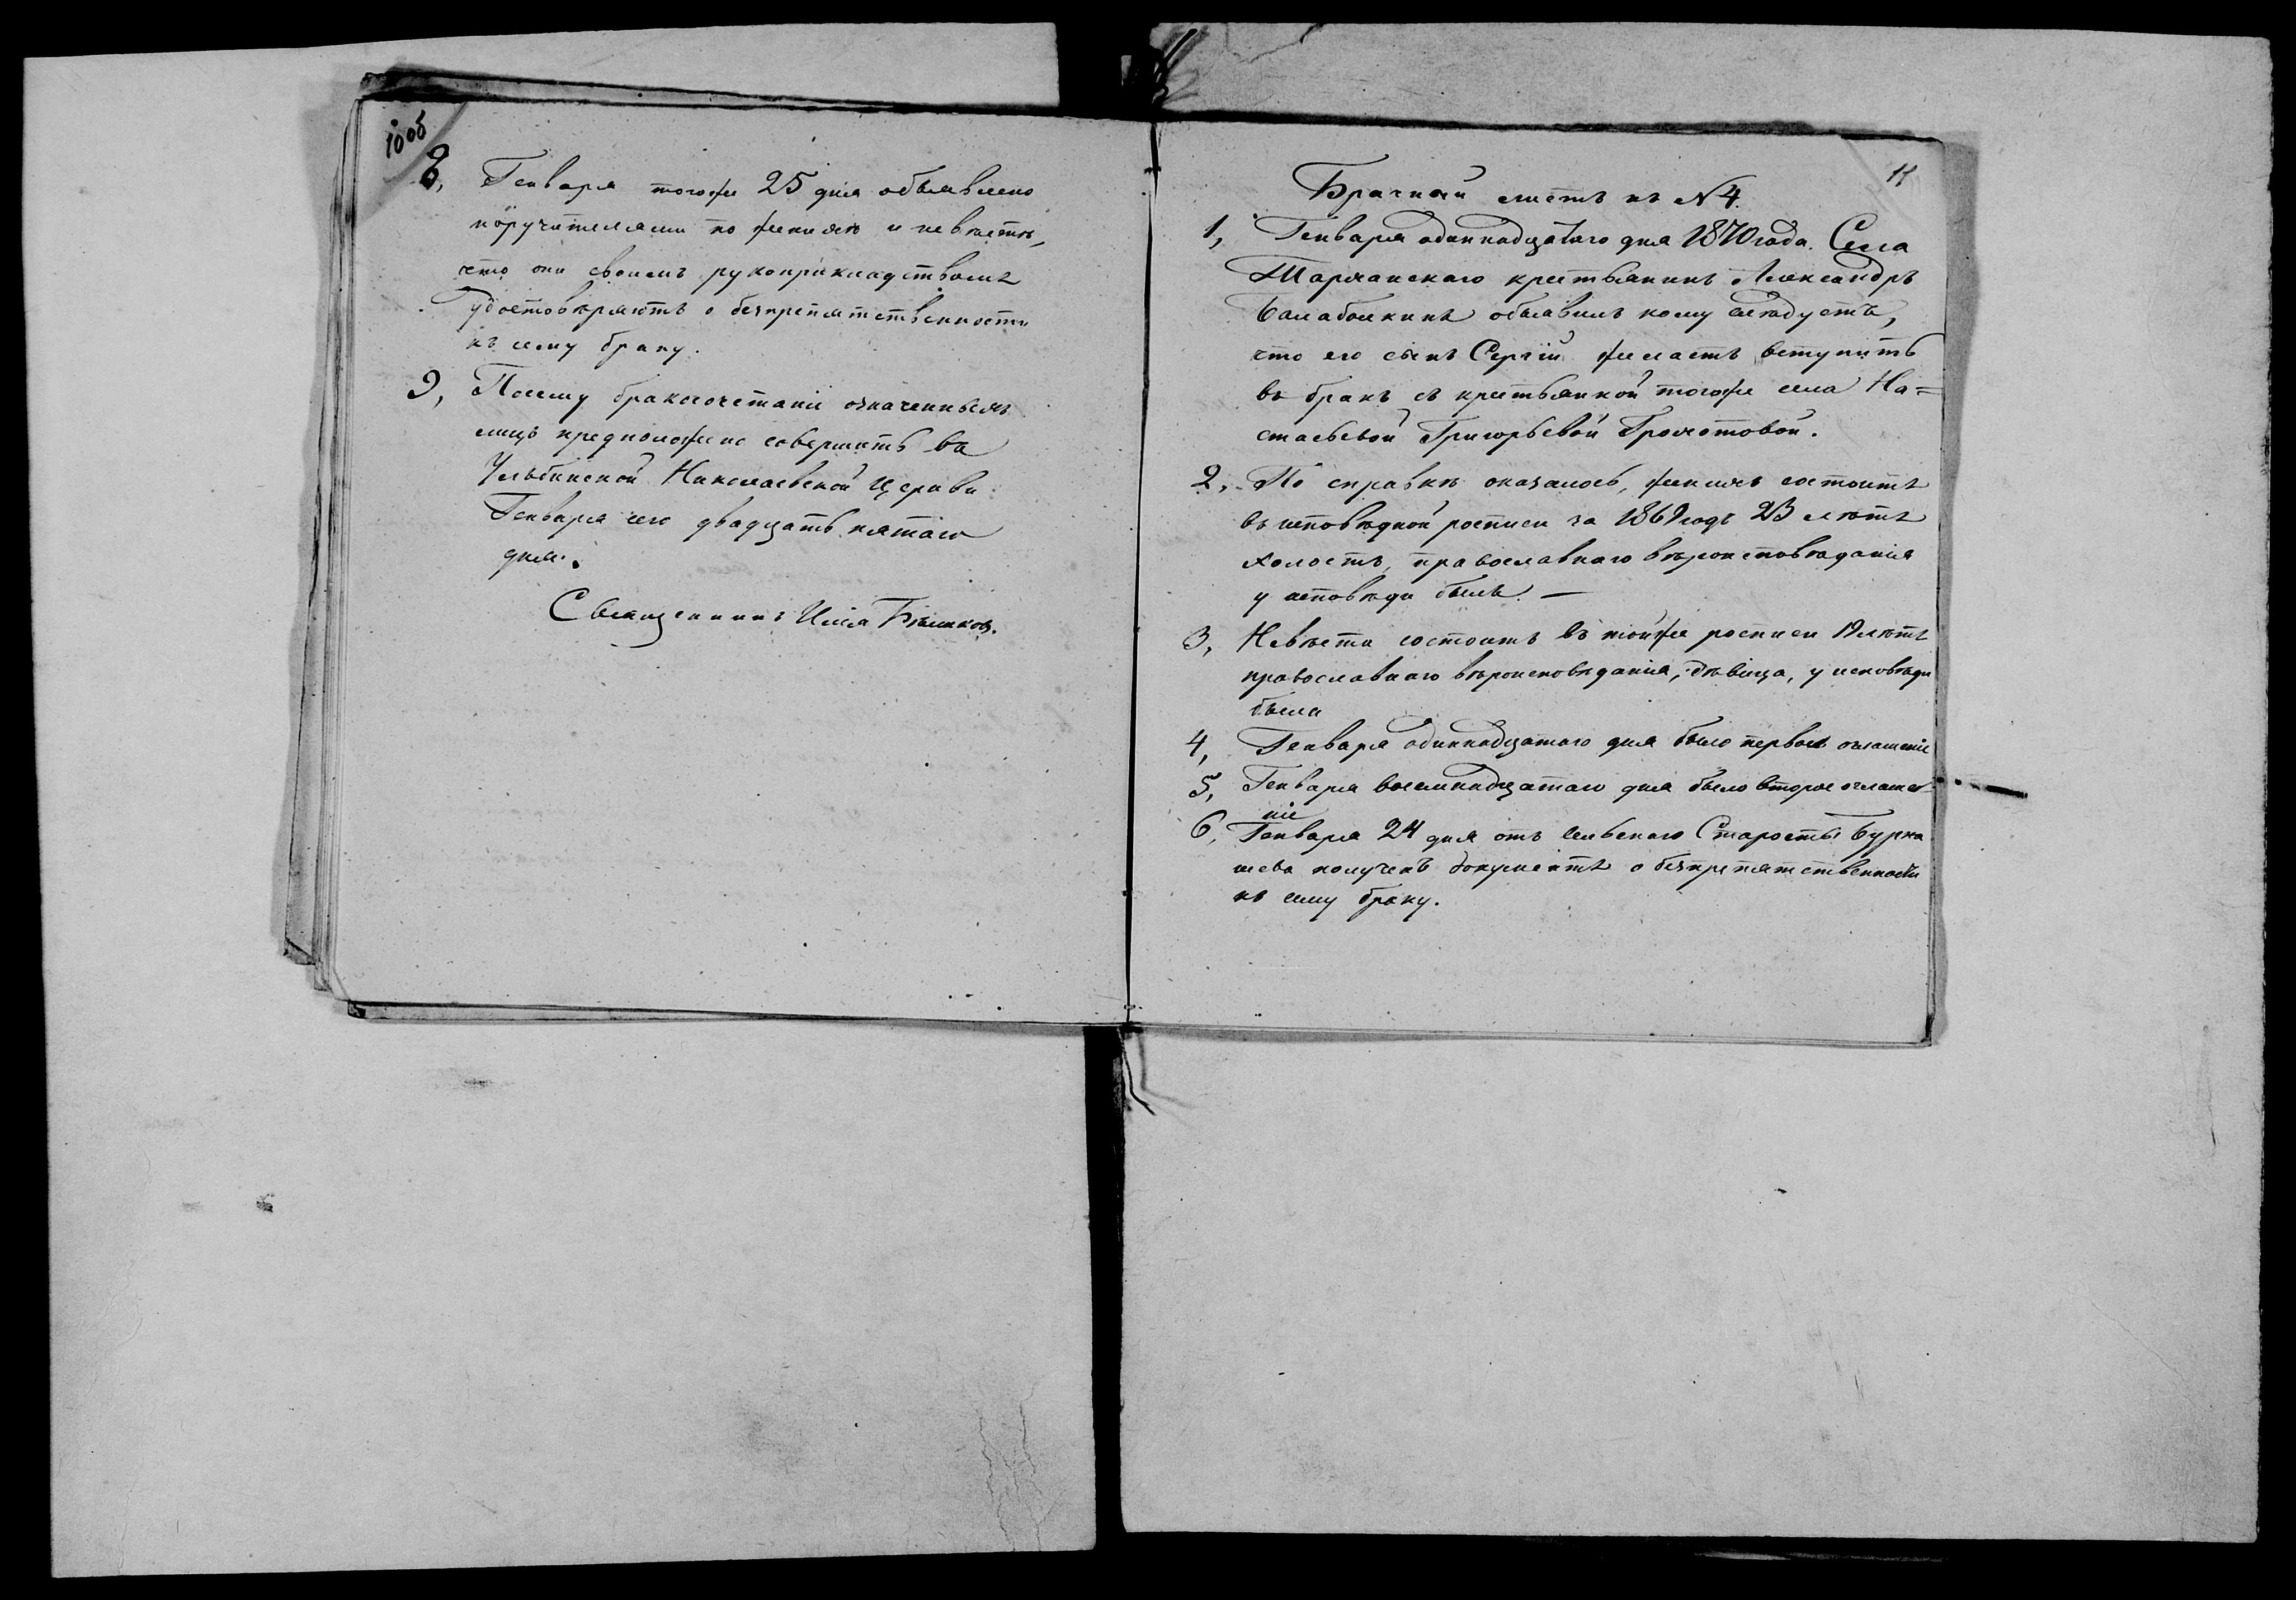 10 об
8, Генваря тогоже 25 дня объявлено
поручителями по женихѣ и невѣстѣ,
что они своимъ рукоприкладствомъ
удостовѣряютъ о безпрепятственности
къ сему браку.
9, Посему бракосочетаніе означенныхъ
лицъ предположено совершить въ
Ульбинской Николаевской Церкви
Генваря сего двадцать пятаго
дня.
Священникъ Илія Бѣликовъ.
11
Брачный листъ къ №4.
1, Генваря одиннадцатаго дня 1870 года. Села
крестьянинъ Александръ
Балаболкинъ объявилъ кому слѣдуетъ,
что его сынъ Сергій желаетъ вступить
въ бракъ съ крестьянкой тогоже села На=
стасьей Григорьевой Громотовой.
2, По справкѣ оказалось, женихъ состоитъ
въ исповѣдной росписи за 1869 годъ 23 лѣтъ
холостъ, православнаго вѣроисповѣданія
у исповѣди былъ. —
3, Невѣста состоитъ въ тойже росписи 19 лѣтъ
православнаго вѣроисповѣданія, дѣвица, у исповѣди
была
4, Генваря одиннадцатаго дня было первое оглашеніе
5, Генваря восемнадцатаго дня было второе оглаше-
ніе
6, Генваря 24 дня отъ сельскаго Старосты Бурна
шева полученъ документъ о безпрепятственности
къ сему браку.